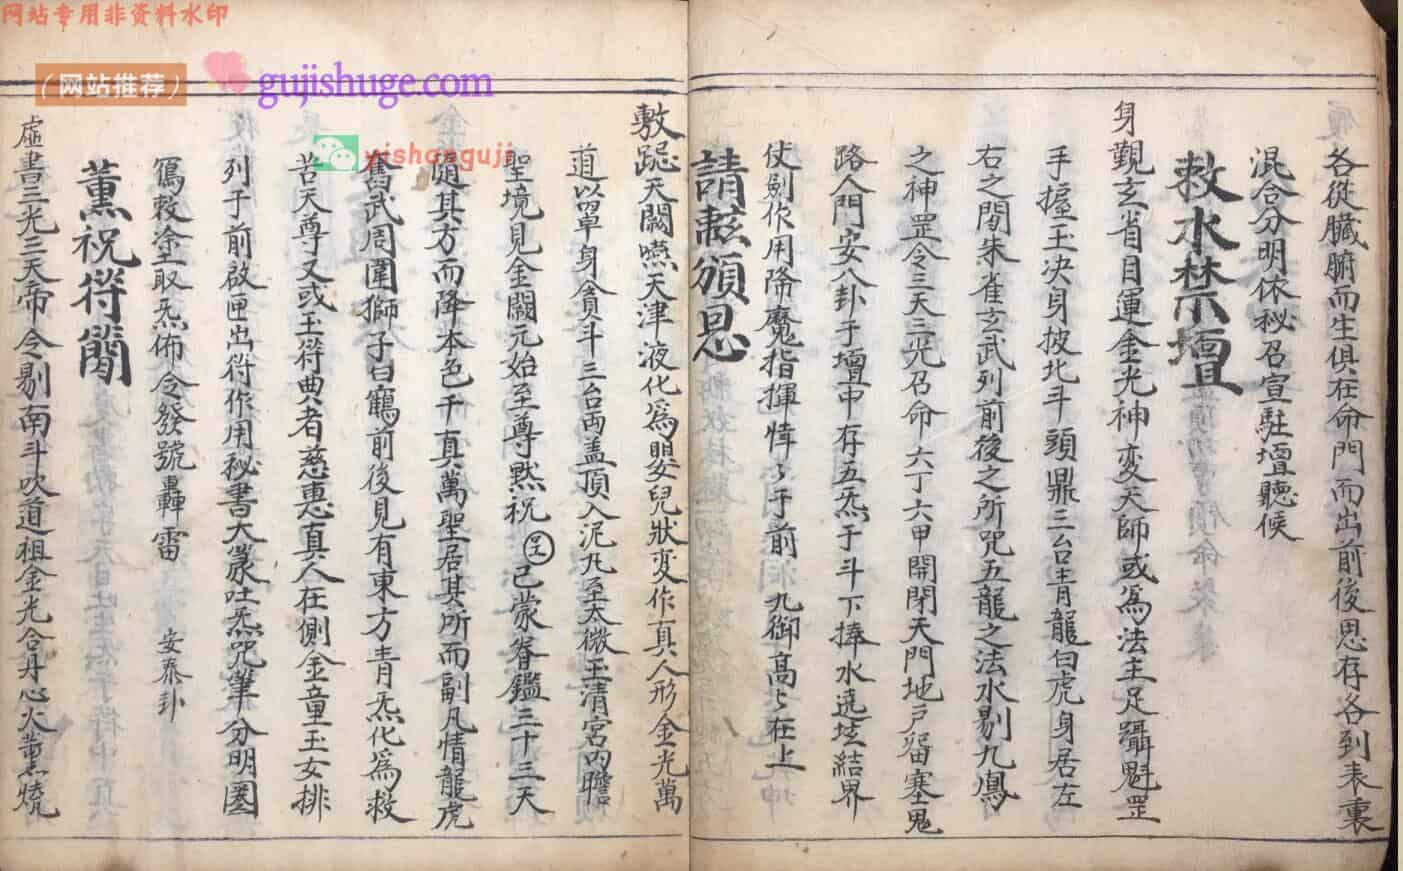 网站专用非资料水印
(网站推荐)
gujishuge.com
yishanguji
各從臟腑而生俱在命門而出前後思存各到表裏
混合分明依秘召宣駐壇聽候
敕水禁壇
身觀玄省目運金光神变天師或為法主足躡魁罡
手握玉决身披北斗頭鼎三台青龍白虎身居左
右之間朱雀玄武列前後之所咒五龍之法水剔九鳳
之神罡令三天三光召命六丁六甲開閉天門地戶留塞鬼
路入門安八卦于壇中存五炁于斗下捧水遶坛結界
仗劍作用降魔指揮悻々于前九御高々在上
請頒恩
敷跽天闕嚥天津液化為嬰兒狀变作真人形金光萬
道以罩身貪斗三台両盖頂入泥丸至太微玉清宮內瞻
聖境見金闕元始至尊黙祝 已蒙眷鑑三十三天
隨其方而降本色千真萬聖居其所而副凡情龍虎
奮武周圍獅子白鶴前後見有東方青炁化為救
苦天尊又或玉符典者慈惠真人在側金童玉女排
列于前啟匣出符作用秘書大篆吐炁咒筆分明圏
寫敕坌取炁佈令發號轟雷 安泰卦
薰祝符簡
虛書三光三天帝令剔南斗吹道祖金光合丹心火薰燒